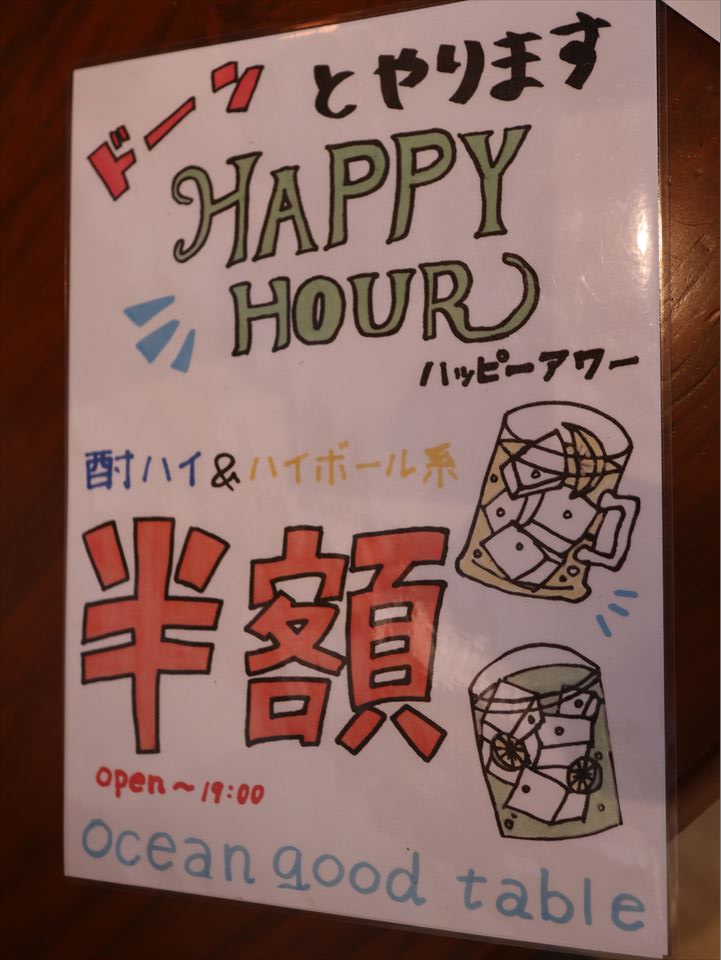 ドーンとやります
HAPPY
HOUR
ハッピーアワー
酎ハイ&ハイボール系
半額
open～19:00
ocean good table